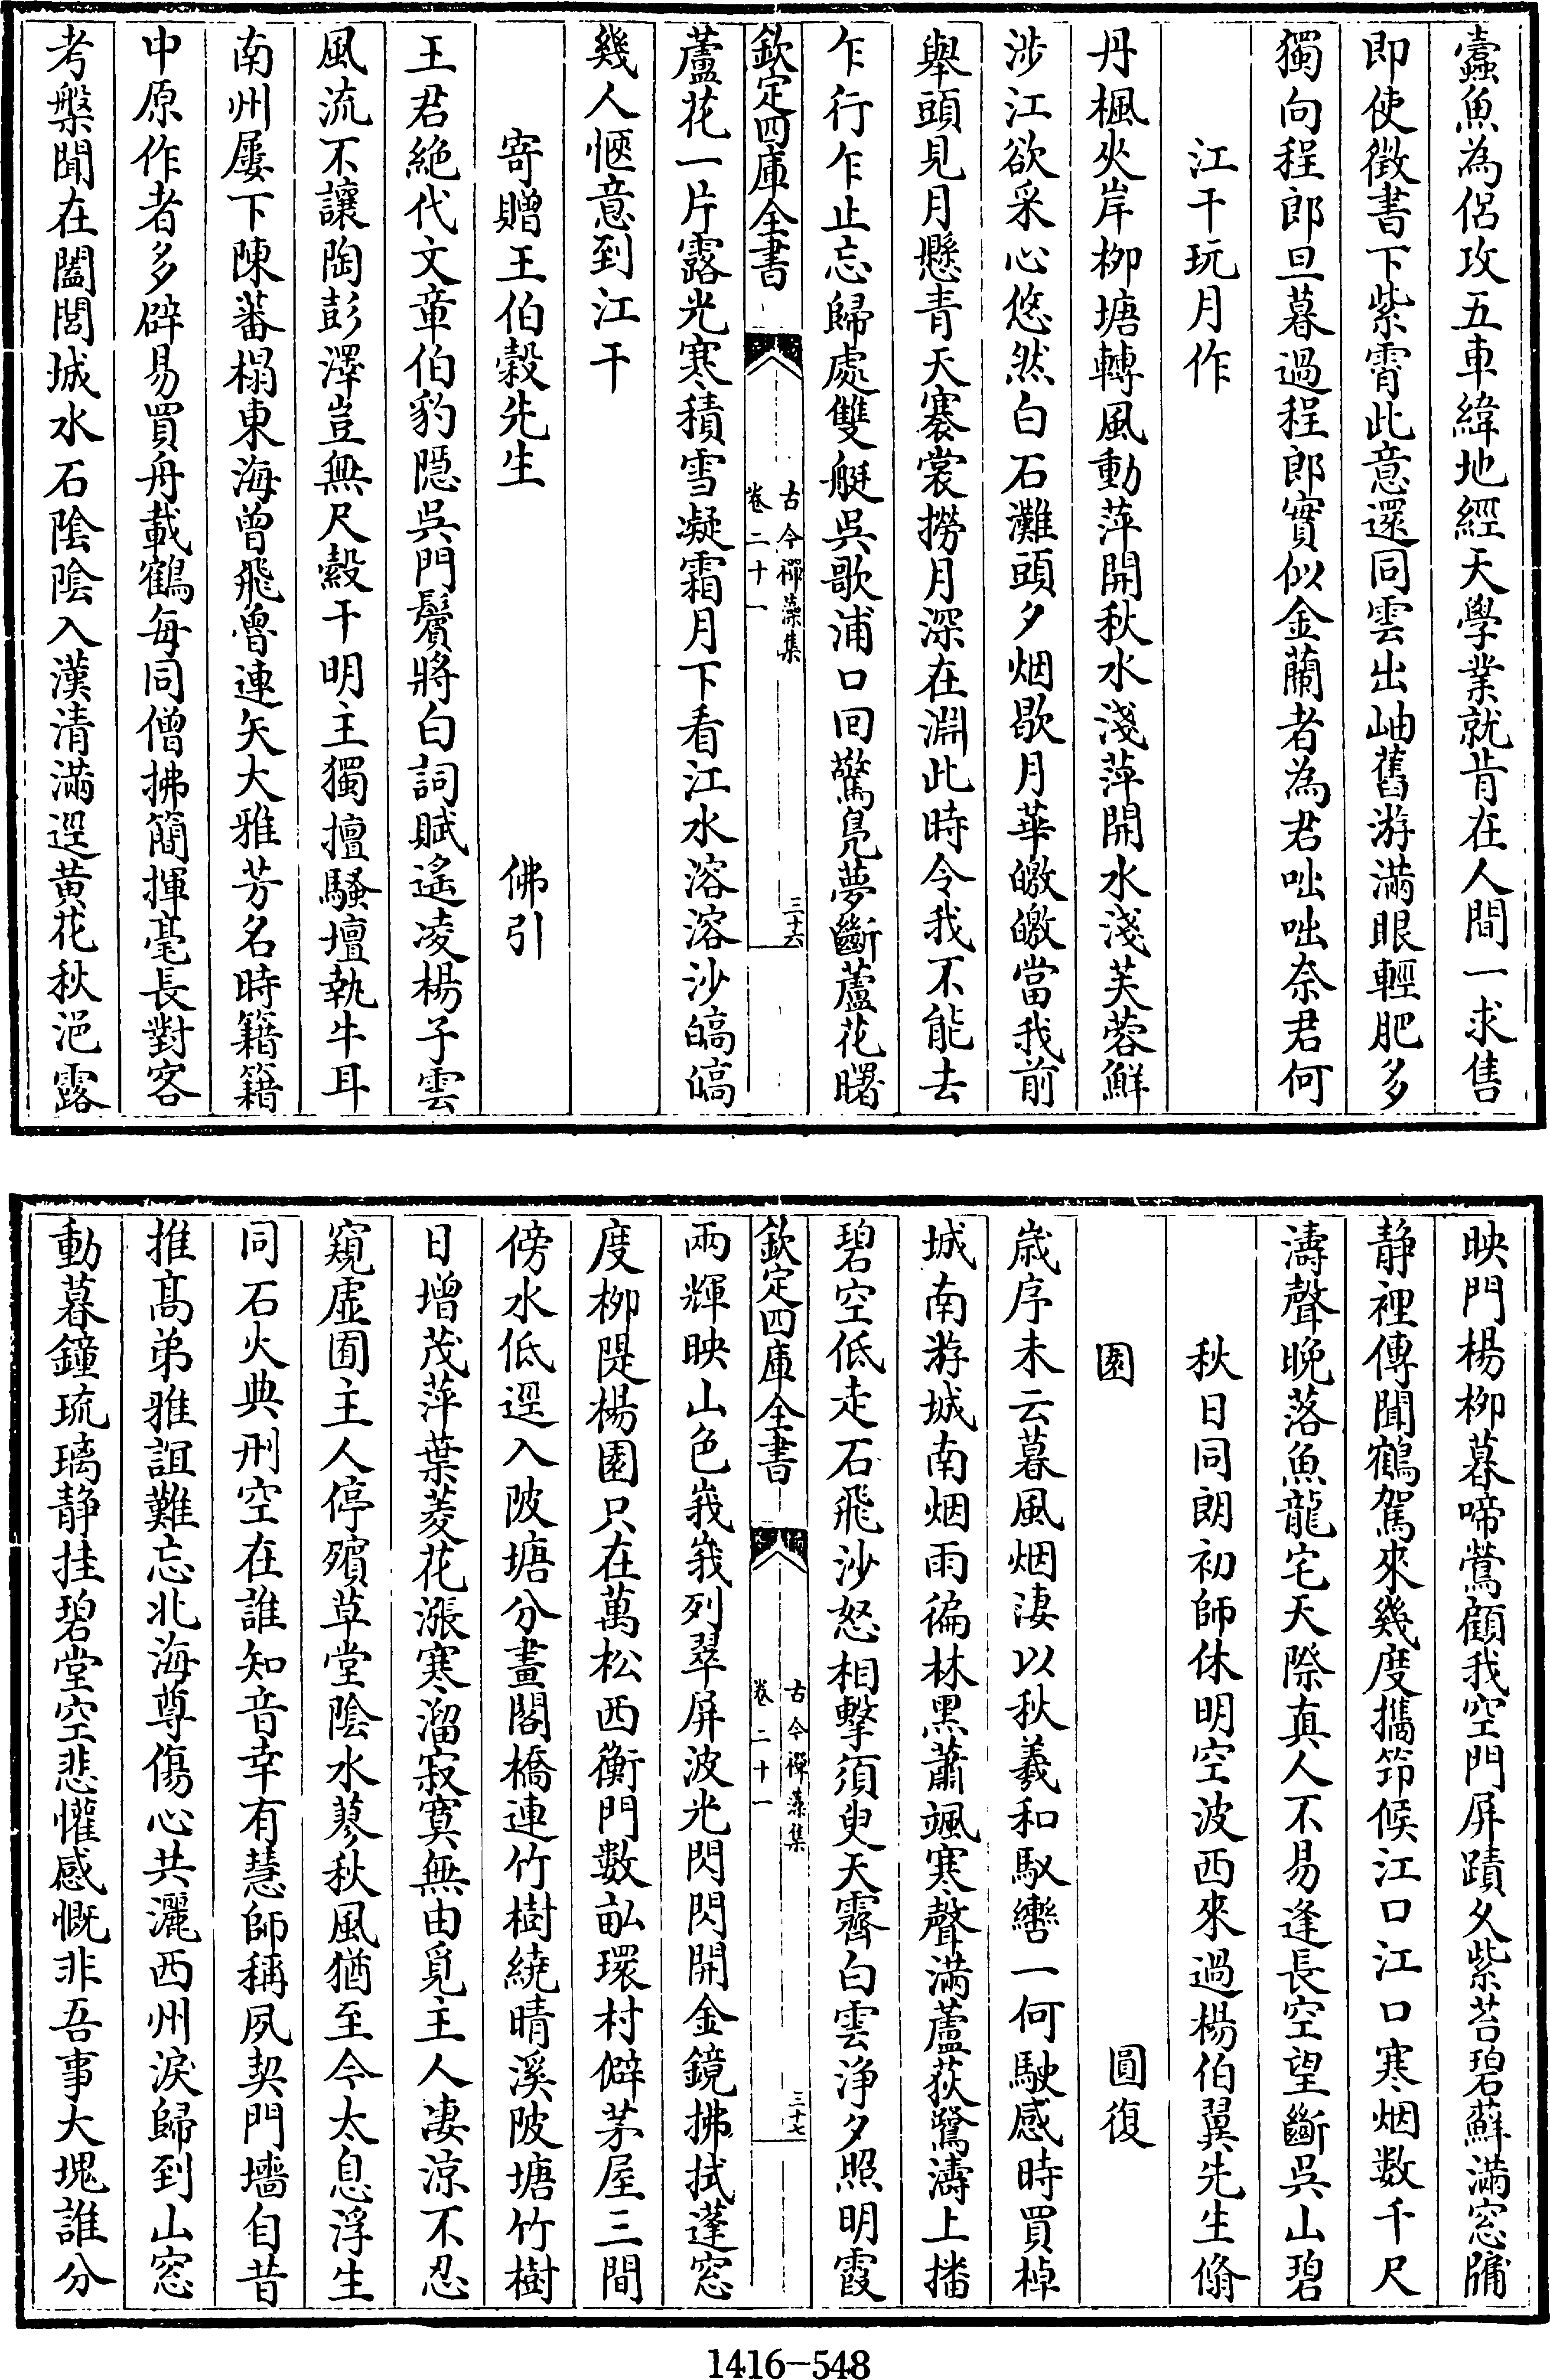 蠧魚為侣攻五車緯地經天學業就肯在人間一求售
即使徵書下紫霄此意還同雲出岫舊游滿眼輕肥多
獨向程郎旦暮過程郎實似金蘭者為君咄咄奈君何
江干玩月作
丹楓夾岸栁塘轉風動萍開秋水淺萍開水淺芙蓉鮮
涉江欲采心悠然白石灘頭夕烟歇月華皦皦當我前
舉頭見月懸青天褰裳撈月深在淵此時令我不能去
乍行乍止忘歸處雙艇吳歌浦口囘驚鳬夢斷蘆花曙
欽定四庫全書
古今禪藻集
卷二十一
三十六
蘆花一片露光寒積雪凝霜月下看江水溶溶沙皜皜
幾人愜意到江干
寄贈王伯穀先生
佛引
王君絶代文章伯豹隠吳門鬢將白詞賦遙凌楊子雲
風流不讓陶彭澤豈無尺縠干明主獨擅騷壇執牛耳
南州屢下陳蕃榻東海曾飛魯連矢大雅芳名時籍籍
中原作者多辟易買舟載鶴每同僧拂簡揮毫長對客
考槃聞在闔閭城水石陰陰入漢清滿逕黄花秋浥露
映門楊栁暮啼鶯顧我空門屏蹟久紫苔碧蘚滿窓牖
静裡傳聞鶴駕來幾度攜笻候江口江口寒烟数千尺
濤聲晩落魚龍宅天際真人不易逢長空望斷吳山碧
秋日同朗初師休明空波西來過楊伯翼先生脩
園
圓復
歳序未云暮風烟淒以秋羲和馭轡一何駛感時買棹
城南游城南烟雨徧林黑蕭颯寒聲滿蘆荻鷺濤上播
碧空低走石飛沙怒相擊須臾天霽白雲浄夕照明霞
欽定四庫全書
古今禪藻集
卷二十一
三十七
兩輝映山色峩峩列翠屏波光閃閃開金鏡拂拭蓬窓
度栁隄楊園只在萬松西衡門數畝環村僻茅屋三間
傍水低逕入陂塘分畫閣橋連竹樹繞晴溪陂塘竹樹
日增茂萍葉菱花漲寒溜寂寞無由覓主人凄涼不忍
窺虛囿主人停殯草堂陰水蓼秋風猶至今太息浮生
同石火典刑空在誰知音幸有慧師稱夙契門墻自昔
推髙弟雅誼難忘北海尊傷心共灑西州淚歸到山窓
動暮鐘琉璃静挂碧堂空悲懽感慨非吾事大塊誰分
1416-548